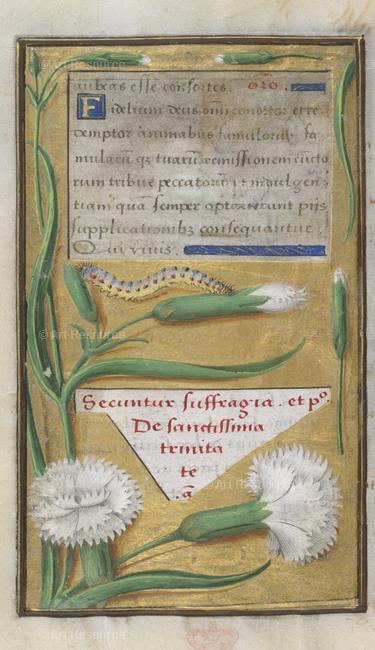 iubeas esse consortes. oro.
Fidelium deus omi conditor et re
demptor animabus famulorū fa
mularū q3 tuarū remissionem cūcto
rum tribue peccatorū : indulgen
tiam quā semper optaverunt pijs
supplicationib3 consequantur.
Qui vivis.
Secuntur suffragia. et pº.
De sanctissima
trinita
te
.a
© Art Resource
© Art Resource
© Art Resource
© Art Resource